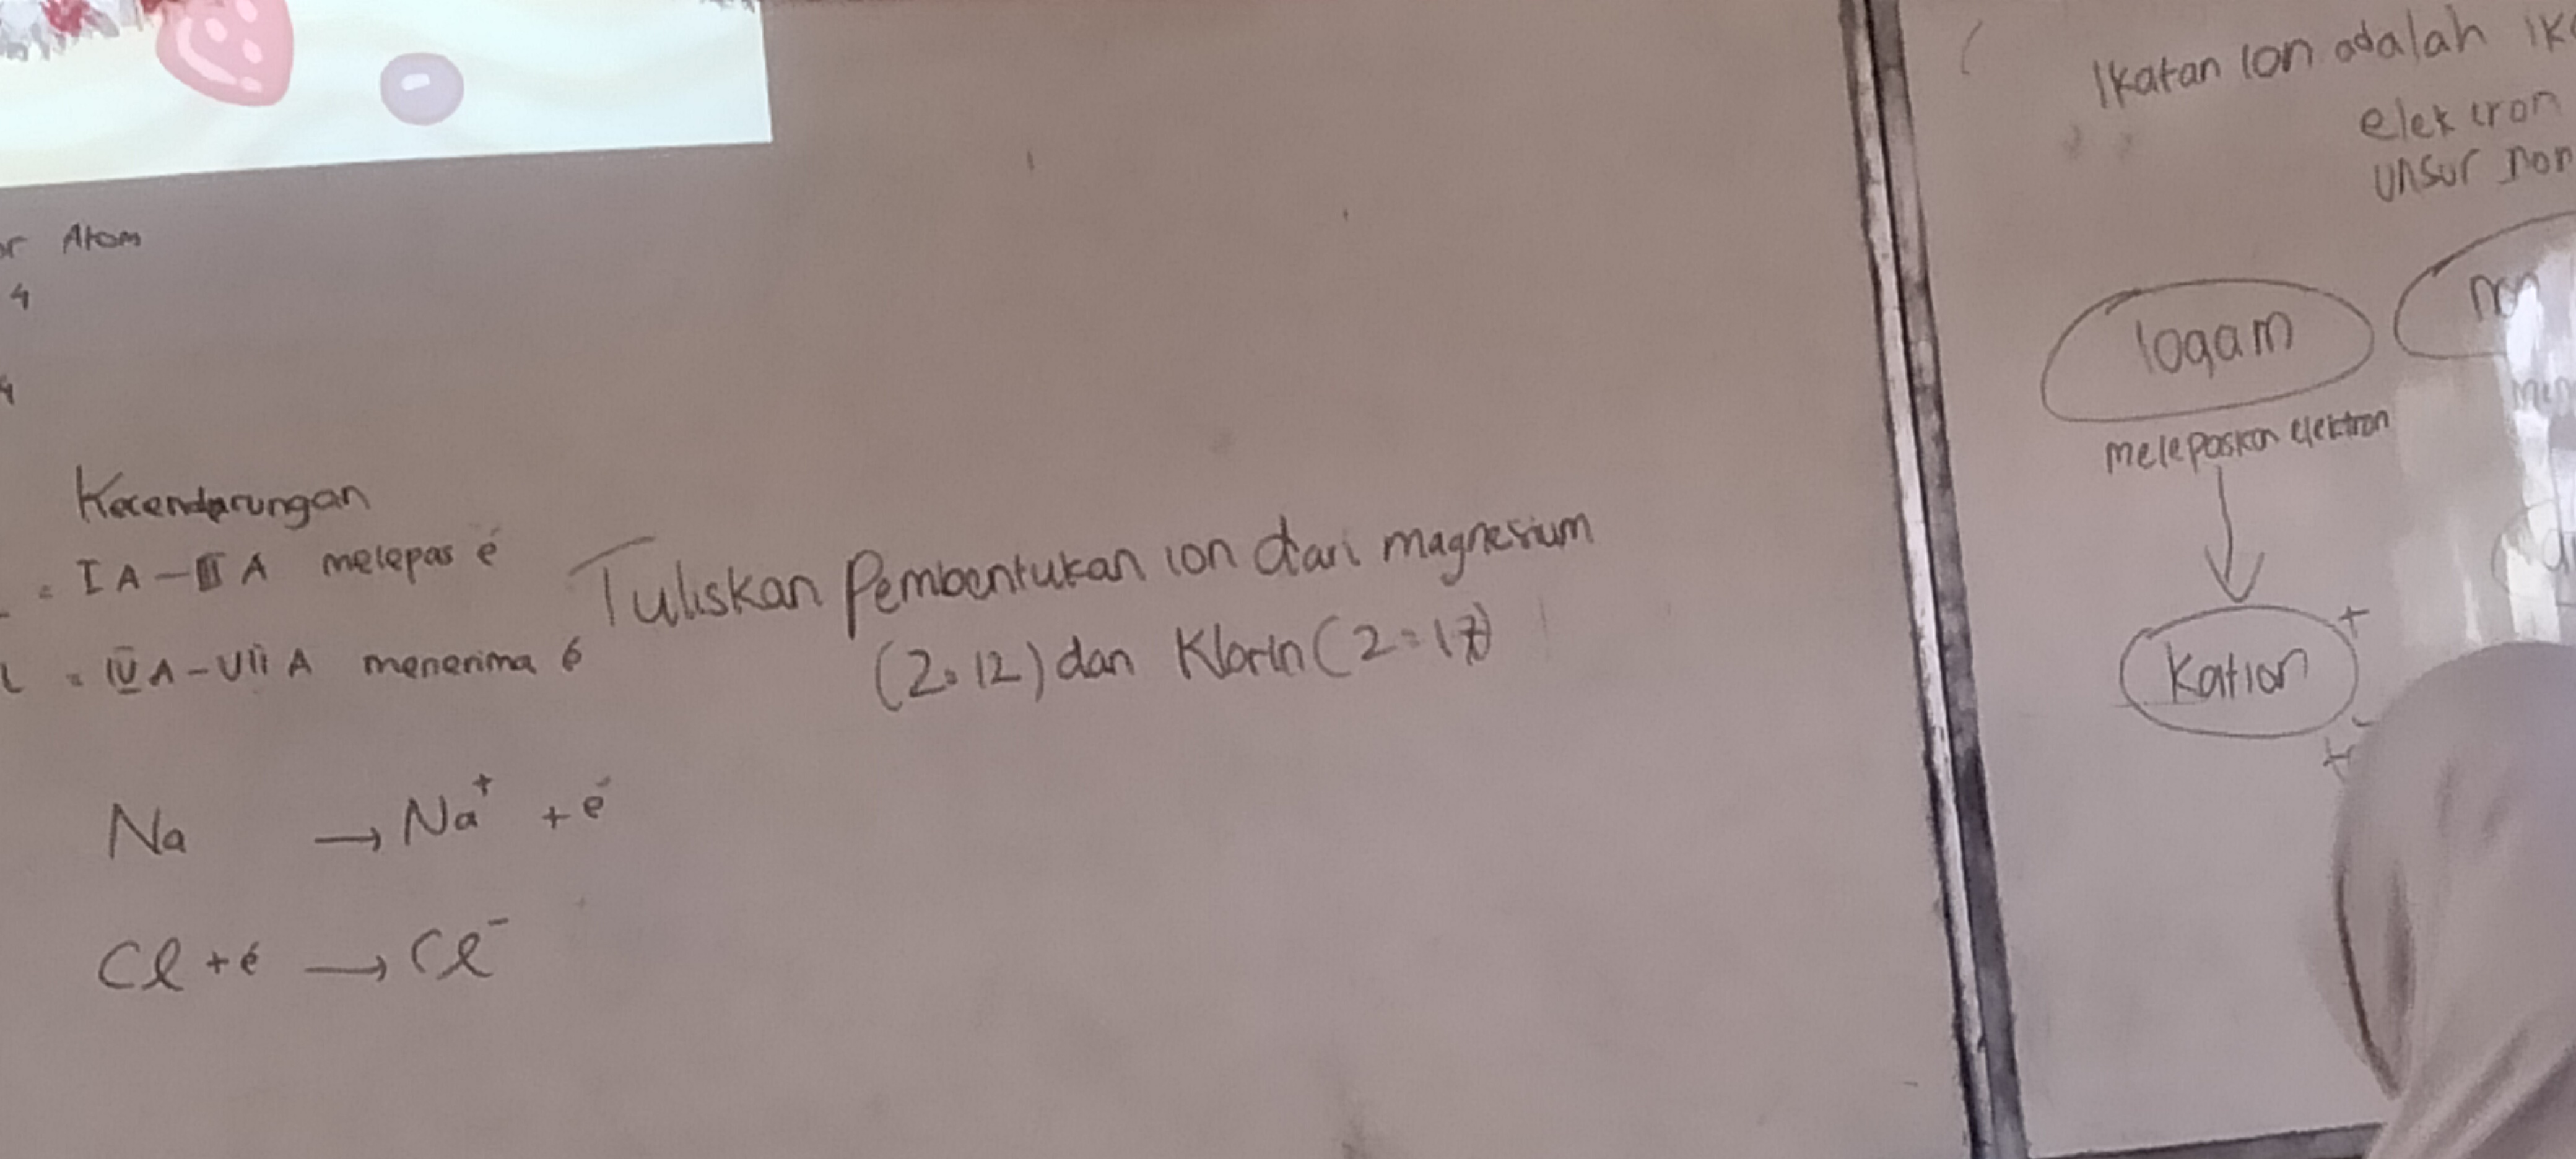 Atom
4
4
Kecendarungan
= I A - III A melepas e
= IV A - VII A menerima e
Na → Na⁺ + e⁻
Cl + e → Cl⁻
Tuliskan Pembentukan ion dari magnesium
(2=12) dan Klorin (2=17)
Ikatan Ion adalah
elektron
unsur non
logam
non
melepaskan elektron
+
Kation